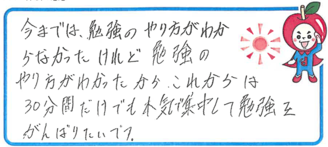 今までは、勉強のやり方がわか
らなかったけれど勉強の
やり方がわかったから、これからは
30分間だけでも本気で集中して勉強を
がんばりたいです。